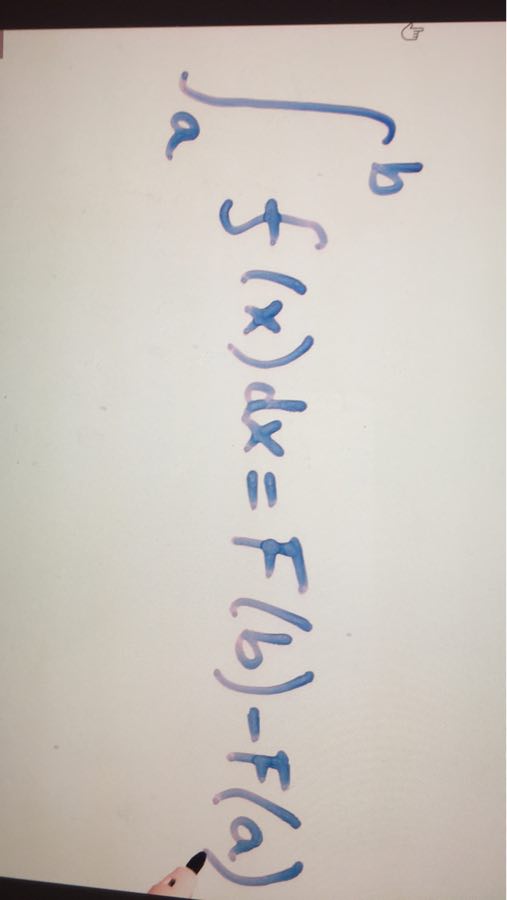 ∫_a^b f(x)dx = F(b) - F(a)